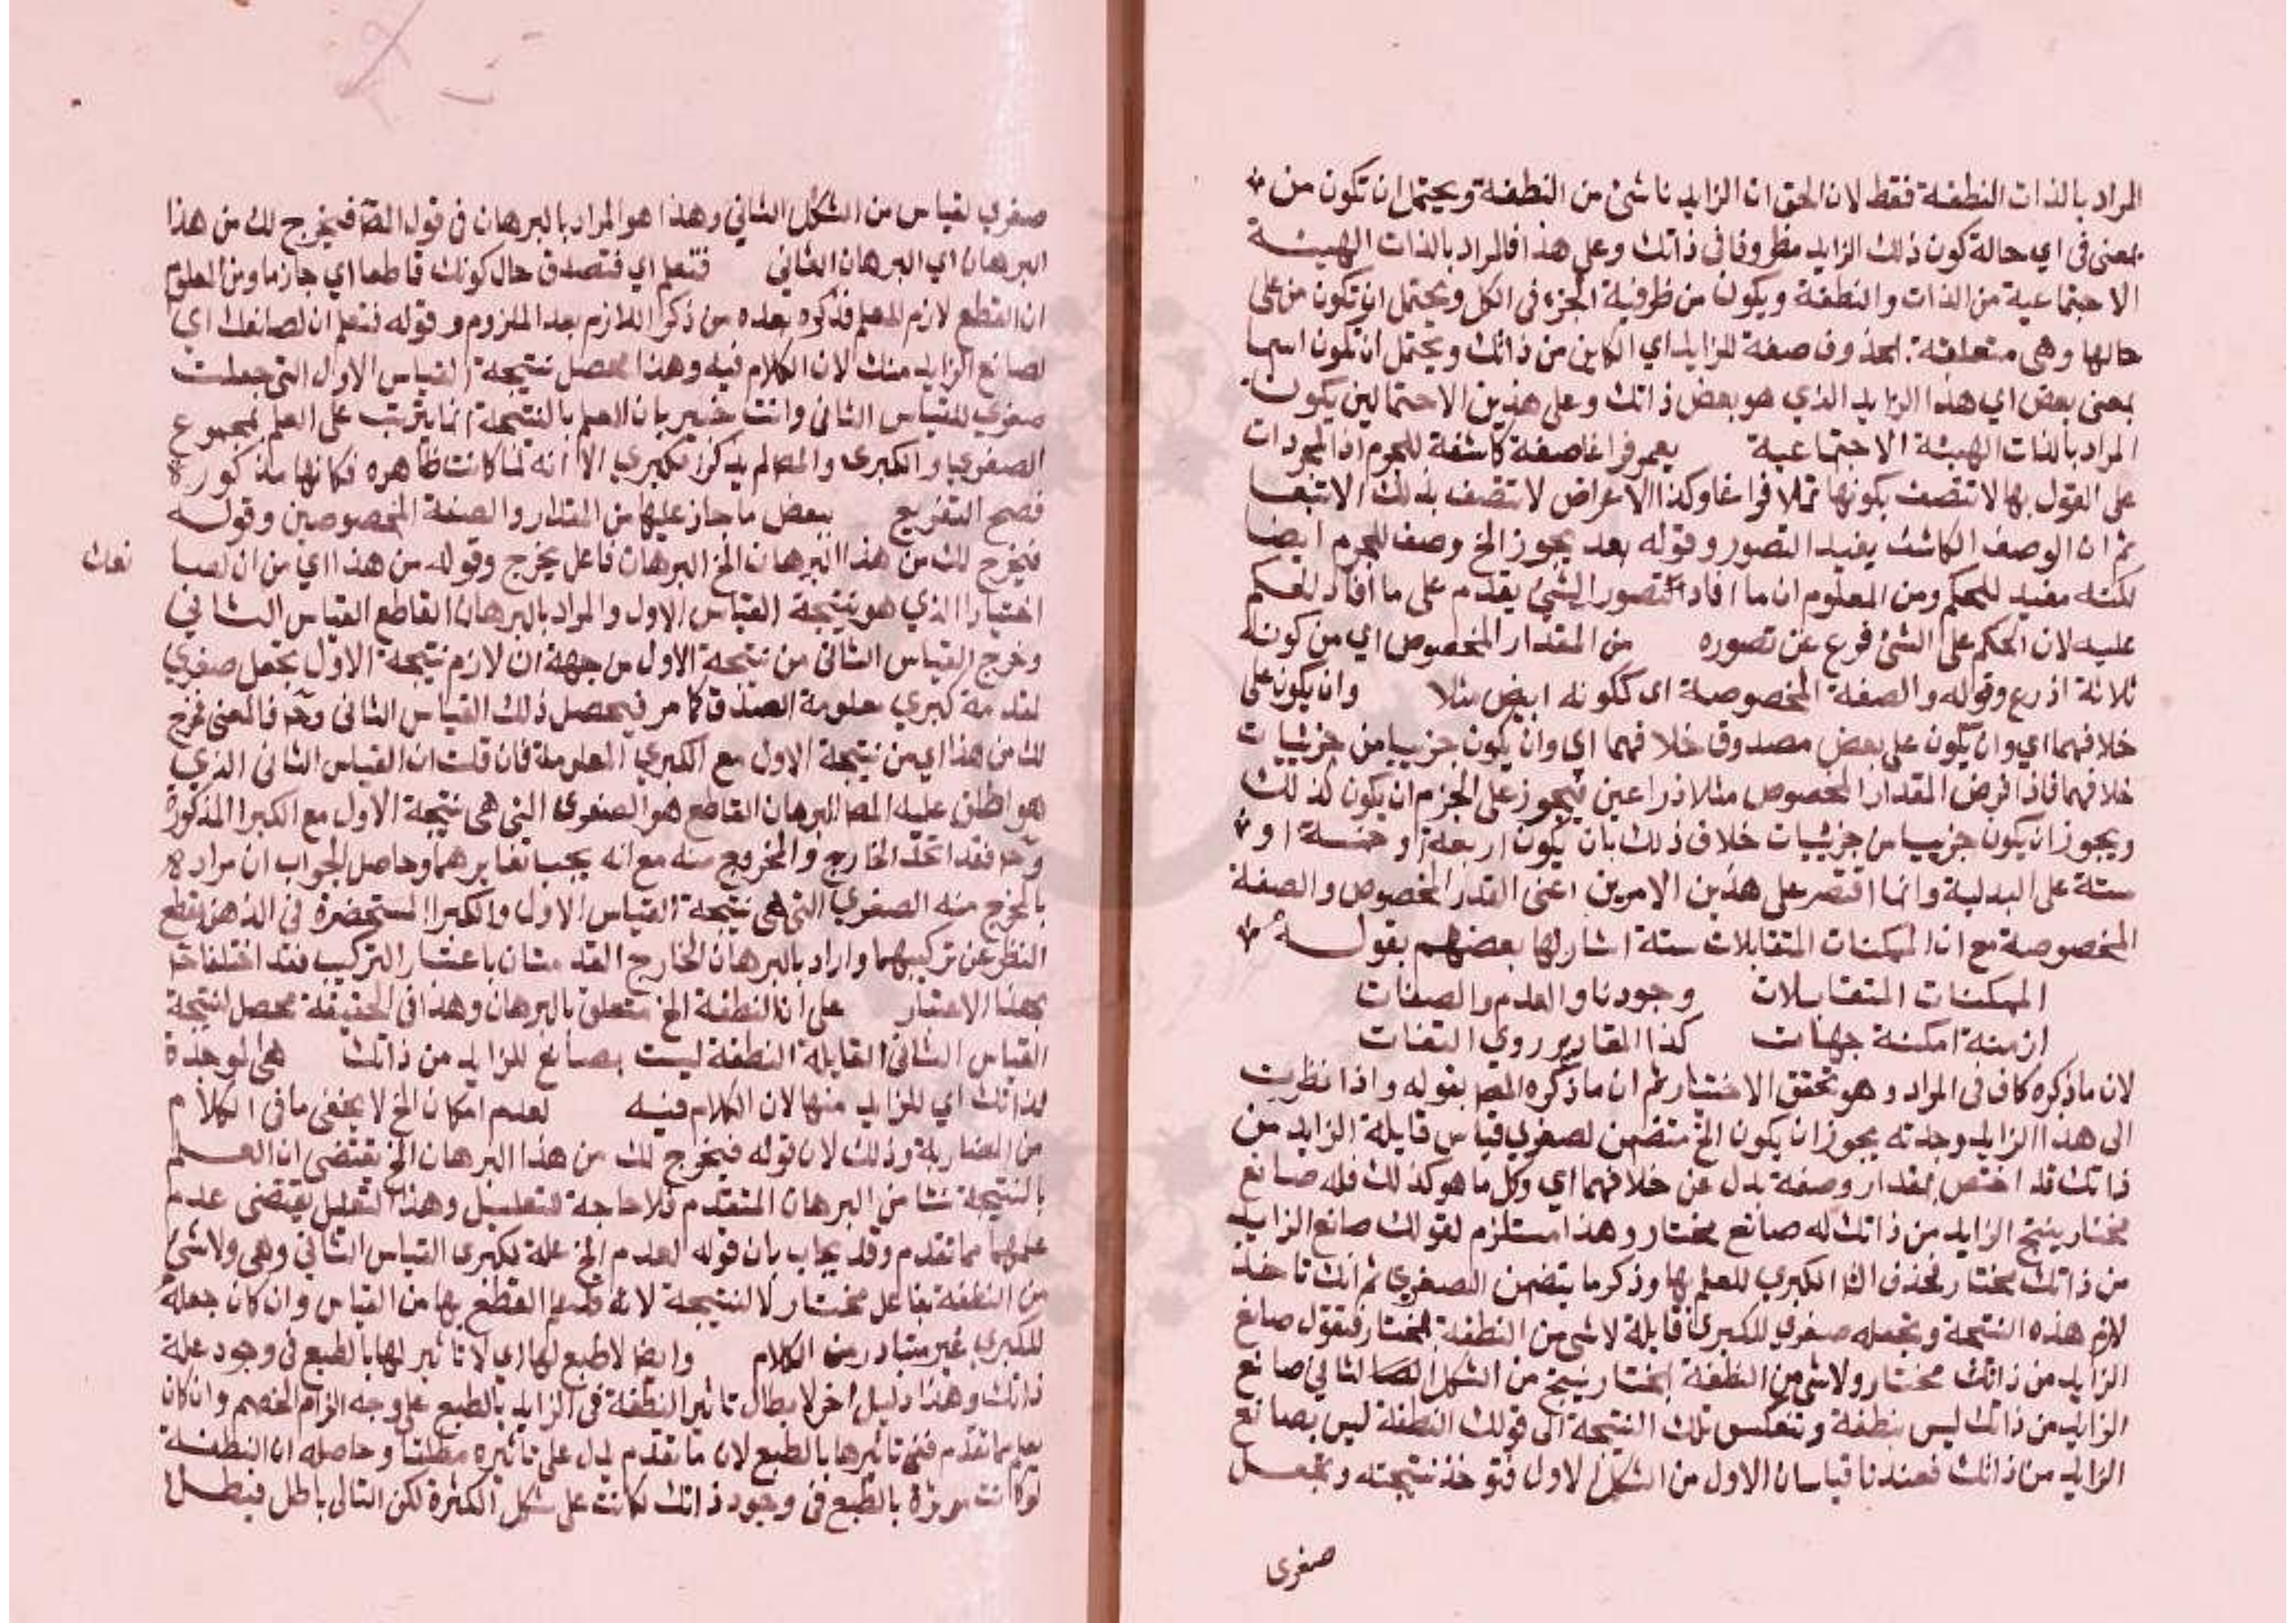 المراد بالذات النطفة فقط لان الحق ان الزايد ناشئ من النطفة ويحتمل ان تكون من
بمعنى في اي حالة كون ذلك الزايد مظروفا في ذاتك وعلى هذا فالمراد بالذات الهيئة
الاجتماعية من الذات والنطفة ويكون من ظرفية الجزء في الكل ويحتمل ان تكون من على
حالها وهي متعلقة بمحذوف صفة للزايد اي الكاين من ذاتك ويحتمل ان تكون اسما
بمعنى بعض اي هذا الزايد الذي هو بعض ذاتك وعلى هذين الاحتمالين يكون
المراد بالذات الهيئة الاجتماعية يعمر فراغا صفة كاشفة للجرم اذ المجردات
على القول بها لا تتصف بكونها تملا فراغا وكذا الاعراض لا تتصف بذلك الا تبعا
ثم ان الوصف الكاشف يفيد التصور وقوله بعد يجوز الخ وصف للجرم ايضا
لكنه مفيد للحكم ومن المعلوم ان ما افاد تصور الشئ يقدم على ما افاد الحكم
عليه لان الحكم على الشئ فرع عن تصوره من المقدار المخصوص اي من كونه
ثلاثة اذرع وقوله والصفة المخصوصة اي ككونه ابيض مثلا وان يكون على
خلافهما اي وان يكون على بعض مصدوقا خلافهما اي وان يكون جزييا من جزئيات
خلافهما فاذا فرض المقدار المخصوص مثلا ذراعين فيجوز على الجزم ان يكون كذلك
ويجوز ان يكون جزييا من جزئيات خلاف ذلك بان يكون اربعة او خمسة او
ستة على البدلية وانما اقتصر على هذين الامرين اعنى القدر المخصوص والصفة
المخصوصة مع ان الممكنات المتقابلات ستة اشار لها بعضهم بقوله
الممكنات المتقابلات وجودنا والعدم والصفات
ازمنة امكنة جهات كذا المقادير روي الثقات
لان ما ذكره كاف في المراد وهو تحقق الاختيار ثم ان ما ذكره المص بقوله واذا نظرت
الى هذا الزايد وجدته يجوز ان يكون الخ متضمن لصغري قياس قايلة الزايد من
ذاتك قد اختص بمقدار وصفة بدل عن خلافهما اي وكل ما هو كذلك فله صانع
مختار ينتج الزايد من ذاتك له صانع مختار وهذا مستلزم لقولك صانع الزايد
من ذاتك مختار فحذف الكبري للعلم بها وذكر ما يتضمن الصغري ثم انك تاخذ
لازم هذه النتيجة وتجعله صغري للكبري قايلة لا شئ من النطفة بمختار فتقول صانع
الزايد من ذاتك مختار ولا شئ من النطفة بمختار ينتج من الشكل الثاني صانع
الزايد من ذاتك ليس بنطفة وتنعكس تلك النتيجة الى قولك النطفة ليس بصانع
الزايد من ذاتك فعندنا قياسان الاول من الشكل الاول فتوخذ نتيجته وتجعل
صغرى
صغري لقياس من الشكل الثاني وهذا هو المراد بالبرهان في قول المص فيخرج لك من هذا
البرهان اي البرهان الثاني فتعلم اي فتصدق حال كونك قاطعا اي جازما ومن المعلوم
ان القطع لازم للعلم فذكره بعده من ذكر اللازم بعد الملزوم وقوله فتعلم ان لصانعك اي
لصانع الزايد منك لان الكلام فيه وهذا محصل نتيجة القياس الاول التي جعلت
صغري للقياس الثاني وانت خبير بان العلم بالنتيجة انما يترتب على العلم بمجموع
الصغري والكبرى والمص لم يذكر الكبري الا انه لما كانت ظاهره فكانها مذكورة
فصح التفريع ببعض ما جاز عليها من المقدار والصفة المخصوصين وقوله
فيخرج لك من هذا البرهان الخ البرهان فاعل يخرج وقوله من هذا اي من ان لصا
نعك
اختيار الذي هو نتيجة القياس الاول والمراد بالبرهان القاطع القياس الثاني
وخرج القياس الثاني من نتيجة الاول من جهة ان لازم نتيجة الاول تجعل صغري
لمقدمة كبري معلومة الصدق كما مر فيحصل ذلك القياس الثاني وح فالمعنى فخرج
لك من هذا اي من نتيجة الاول مع الكبري المعلومة فان قلت ان القياس الثاني الذي
هو اطلق عليه المص البرهان القاطع هو الصغرى التي هي نتيجة الاول مع الكبرا المذكورة
وح فقد اتحد الخارج والمخروج منه مع انه يجب تغايرهما وحاصل الجواب ان مراده
بالمخرج منه الصغري التي هي نتيجة القياس الاول والكبرا المستحضرة في الذهن بقطع
النظر عن تركيبهما واراد بالبرهان الخارج المقدمتان باعتبار التركيب فقد اختلفا
بهذا الاعتبار على ان النطفة الخ متعلق بالبرهان وهذا في الحقيقة محصل لنتيجة
القياس الثاني القايلة النطفة ليست بصانع للزايد من ذاتك هي الموجدة
لذاتك اي للزايد منها لان الكلام فيه لعدم امكان الخ لا يخفى ما في الكلام
من المضاربة وذلك لان قوله فيخرج لك من هذا البرهان الخ يقتضى ان العلم
بالنتيجة نشا من البرهان المتقدم فلا حاجة للتعليل وهذا التعليل يقتضى عدم
علمها مما تقدم وقد يجاب بان قوله لعدم الخ علة لكبرى القياس الثاني وهي ولا شئ
من النطفة بفاعل مختار لا للنتيجة لانه القطع بها من القياس وان كان جعله
للكبري غير متبادر من الكلام وايضا لا طبع لها اي لا تاثير لها بالطبع في وجود علة
ذاتك وهذا دليل اخر لابطال تاثير النطفة في الزايد بالطبع على وجه الزام الخصم وان كان
يعلم مما تقدم نفى تاثيرها بالطبع لان ما تقدم يدل على تاثيره مطلقا وحاصله ان النطفة
لو كانت موثرة بالطبع في وجود ذاتك لكانت على شكل الكثرة لكن التالى باطل فبطل